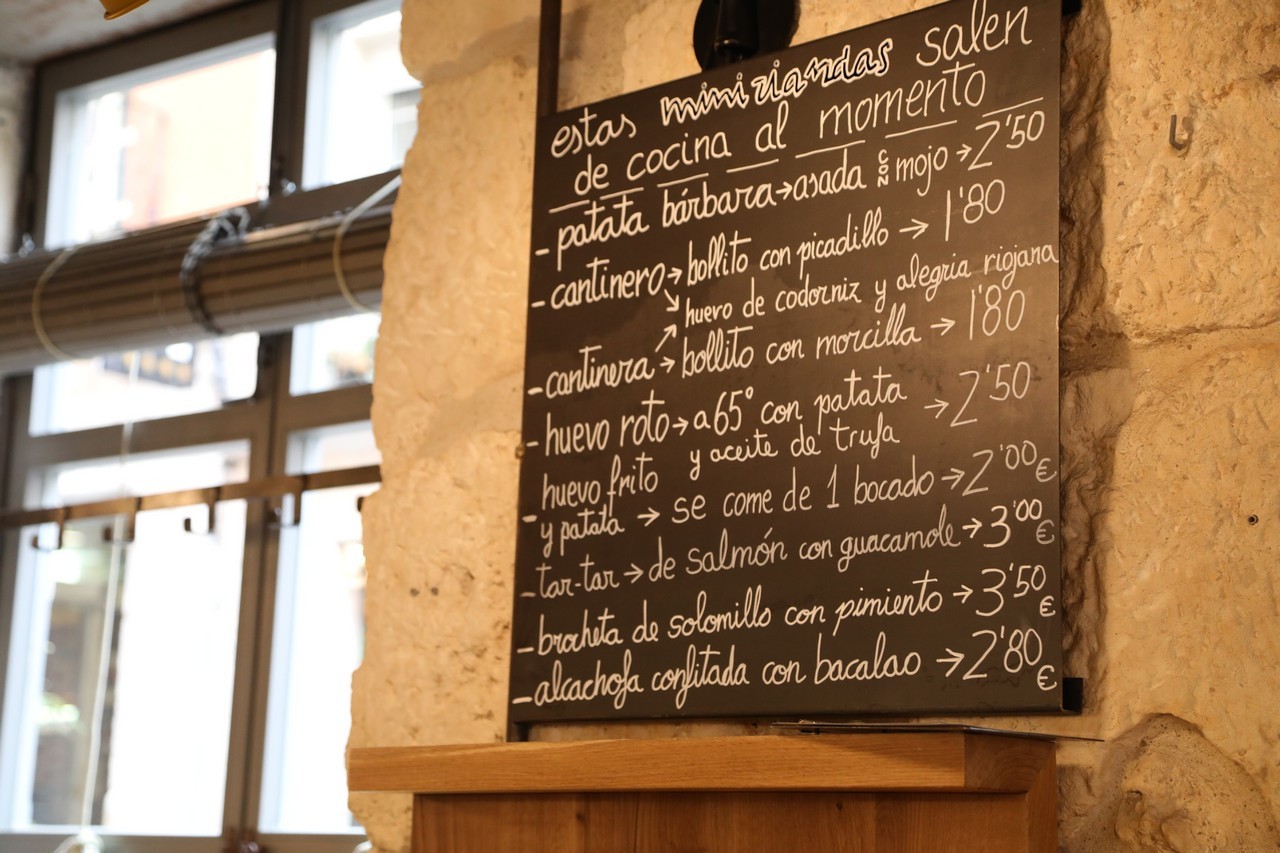 estas miniviandas salen
de cocina al momento
- patata bárbara→asada con mojo →2'50
- cantinero→bollito con picadillo → 1'80
huevo de codorniz y alegria riojana
- cantinera→bollito con morcilla → 1'80
- huevo roto→a 65° con patata → 2'50
y aceite de trufa
huevo frito
- y patata → se come de 1 bocado →2'00€
- tar-tar→de salmón con guacamole→3'00€
- brocheta de solomillo con pimiento →3'50€
- alcachofa confitada con bacalao →2'80€